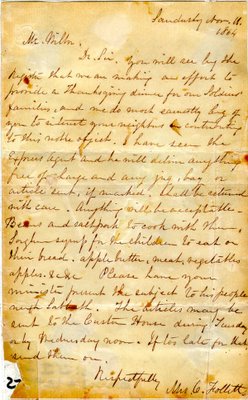 Sandusky Nov. 11.
1864
Mr. Wilson.
Dr. Sir. You will see by the
Register that we are making an effort to
provide a Thanksgiving dinner for our Soldiers
families, and we do most earnestly beg of
you to interest your neighbors in contributing
to this noble object. I have seen the
Express Agent and he will deliver anything
free of charge and any jug, bag or
article sent, if marked shall be returned
with care. Anything will be acceptable
Beans and salt pork to cook with them,
Sorghum syrup for the children to eat on
their bread, apple butter, meat, vegetables
apples. &c &c Please have your
minister present the subject to his people
next Sabbath. The articles may be
sent to the Custom House during Tuesday
or by Wednesday noon. If too late for that
send them on.
Respectfully
Mrs C. Follett
2-